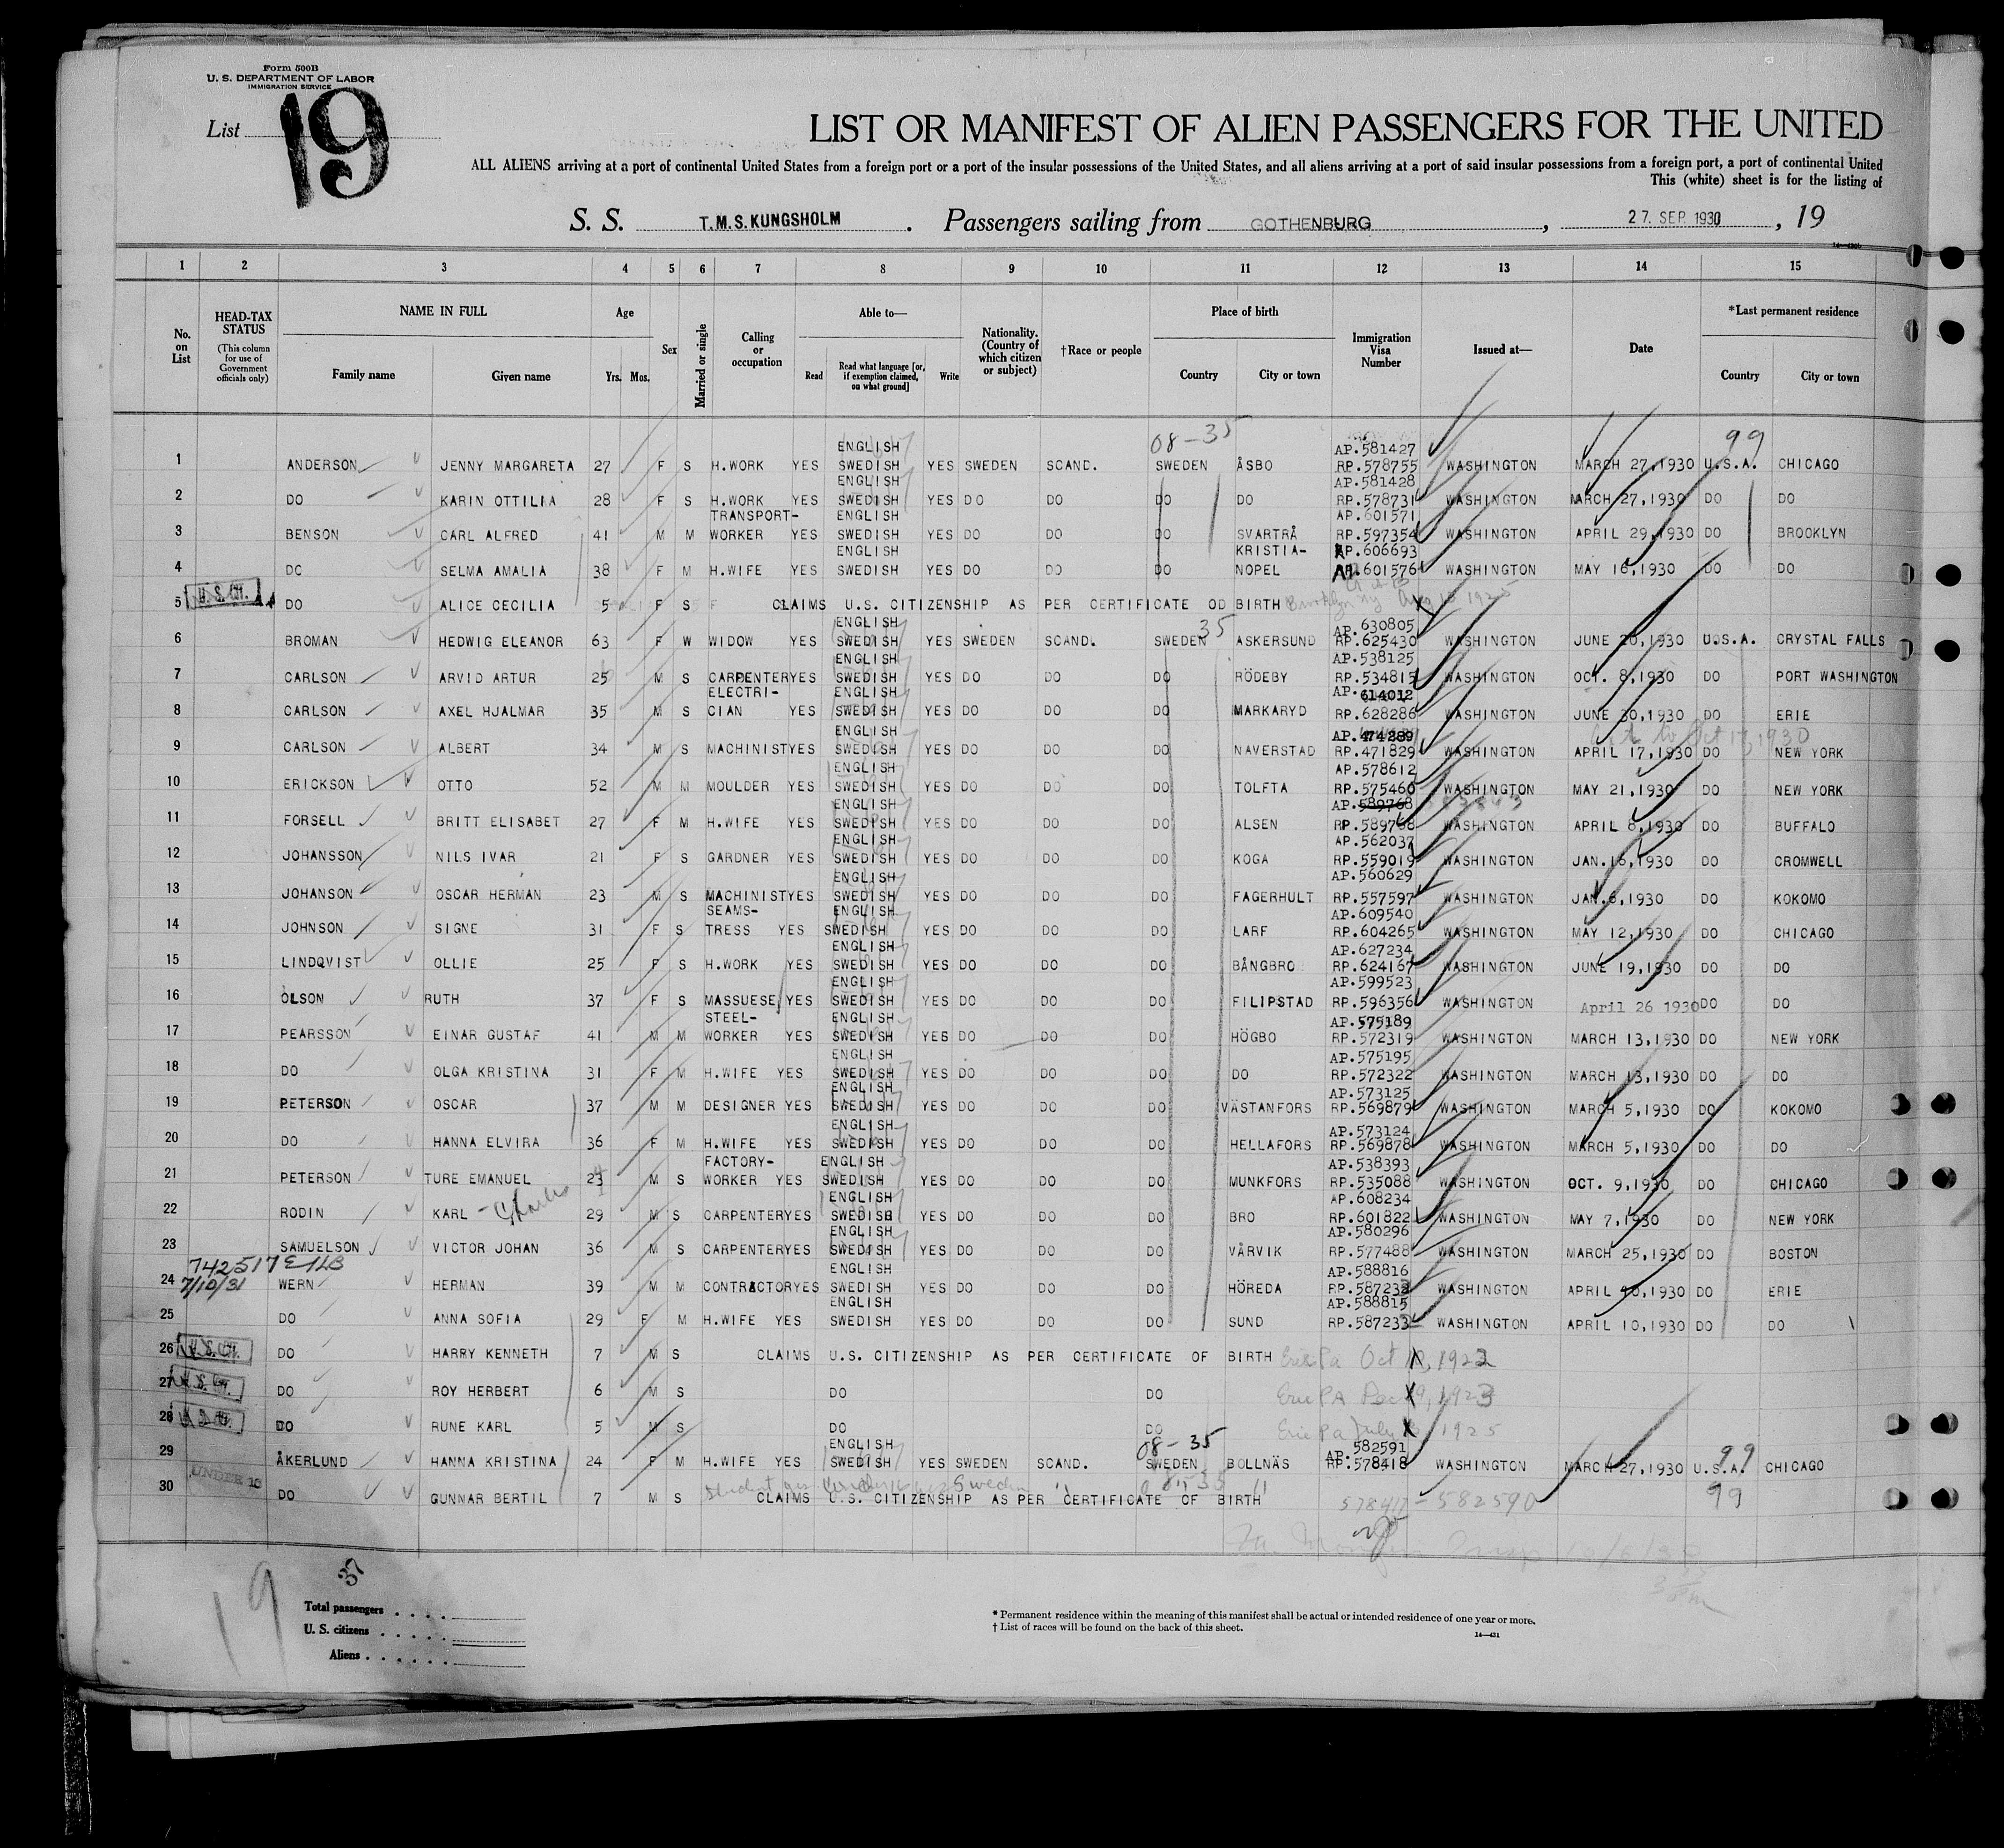 Form 500B
U. S. DEPARTMENT OF LABOR
IMMIGRATION SERVICE
List 19
LIST OR MANIFEST OF ALIEN PASSENGERS FOR THE UNITED
ALL ALIENS arriving at a port of continental United States from a foreign port or a port of the insular possessions of the United States, and all aliens arriving at a port of said insular possessions from a foreign port, a port of continental United
This (white) sheet is for the listing of
S. S. T.M.S.KUNGSHOLM . Passengers sailing from GOTHENBURG , 27. SEP. 1930 , 19
1 2 3 4 5 6 7 8 9 10 11 12 13 14 15
No. on List HEAD-TAX STATUS (This column for use of Government officials only) NAME IN FULL Family name Given name Age Yrs. Mos. Sex Married or single Calling or occupation Able to— Read Read what language [or, if exemption claimed, on what ground] Write Nationality. (Country of which citizen or subject) †Race or people Place of birth Country City or town Immigration Visa Number Issued at— Date *Last permanent residence Country City or town
08-35 99
ENGLISH AP.581427
1 ANDERSON JENNY MARGARETA 27 F S H.WORK YES SWEDISH YES SWEDEN SCAND. SWEDEN ÅSBO RP.578755 WASHINGTON MARCH 27,1930 U.S.A. CHICAGO
ENGLISH AP.581428
2 DO KARIN OTTILIA 28 F S H.WORK YES SWEDISH YES DO DO DO DO RP.578731 WASHINGTON MARCH 27,1930 DO DO
TRANSPORT- ENGLISH AP.601571
3 BENSON CARL ALFRED 41 M M WORKER YES SWEDISH YES DO DO DO SVARTRÅ RP.597354 WASHINGTON APRIL 29,1930 DO BROOKLYN
ENGLISH KRISTIA- RP.606693
4 DO SELMA AMALIA 38 F M H.WIFE YES SWEDISH YES DO DO DO NOPEL AP.601576 WASHINGTON MAY 16,1930 DO DO
U.S. Cit.
5 DO ALICE CECILIA 5 F S CLAIMS U.S. CITIZENSHIP AS PER CERTIFICATE OD BIRTH Brooklyn Ny Aug 18 1925
ENGLISH 35 AP.630805
6 BROMAN HEDWIG ELEANOR 63 F W WIDOW YES SWEDISH YES SWEDEN SCAND. SWEDEN ASKERSUND RP.625430 WASHINGTON JUNE 20,1930 U.S.A. CRYSTAL FALLS
ENGLISH AP.538125
7 CARLSON ARVID ARTUR 25 M S CARPENTER YES SWEDISH YES DO DO DO RÖDEBY RP.534815 WASHINGTON OCT. 8,1930 DO PORT WASHINGTON
ELECTRI- ENGLISH AP.614012
8 CARLSON AXEL HJALMAR 35 M S CIAN YES SWEDISH YES DO DO DO MARKARYD RP.628286 WASHINGTON JUNE 30,1930 DO ERIE
ENGLISH AP.474289 Oct 17, 1930
9 CARLSON ALBERT 34 M S MACHINIST YES SWEDISH YES DO DO DO NAVERSTAD RP.471829 WASHINGTON APRIL 17,1930 DO NEW YORK
ENGLISH AP.578612
10 ERICKSON OTTO 52 M M MOULDER YES SWEDISH YES DO DO DO TOLFTA RP.575460 WASHINGTON MAY 21,1930 DO NEW YORK
ENGLISH AP.589768
11 FORSELL BRITT ELISABET 27 F M H.WIFE YES SWEDISH YES DO DO DO ALSEN RP.589768 WASHINGTON APRIL 8,1930 DO BUFFALO
ENGLISH AP.562037
12 JOHANSSON NILS IVAR 21 F S GARDNER YES SWEDISH YES DO DO DO KOGA RP.559019 WASHINGTON JAN.16,1930 DO CROMWELL
ENGLISH AP.560629
13 JOHANSON OSCAR HERMAN 23 M S MACHINIST YES SWEDISH YES DO DO DO FAGERHULT RP.557597 WASHINGTON JAN.6,1930 DO KOKOMO
SEAMS- ENGLISH AP.609540
14 JOHNSON SIGNE 31 F S TRESS YES SWEDISH YES DO DO DO LARF RP.604265 WASHINGTON MAY 12,1930 DO CHICAGO
ENGLISH AP.627234
15 LINDQVIST OLLIE 25 F S H.WORK YES SWEDISH YES DO DO DO BÅNGBRO RP.624167 WASHINGTON JUNE 19,1930 DO DO
ENGLISH AP.599523
16 OLSON RUTH 37 F S MASSUESE, YES SWEDISH YES DO DO DO FILIPSTAD RP.596356 WASHINGTON April 26 1930 DO DO
STEEL- ENGLISH AP.575189
17 PEARSSON EINAR GUSTAF 41 M M WORKER YES SWEDISH YES DO DO DO HÖGBO RP.572319 WASHINGTON MARCH 13,1930 DO NEW YORK
ENGLISH AP.575195
18 DO OLGA KRISTINA 31 F M H.WIFE YES SWEDISH YES DO DO DO DO RP.572322 WASHINGTON MARCH 13,1930 DO DO
ENGLISH AP.573125
19 PETERSON OSCAR 37 M M DESIGNER YES SWEDISH YES DO DO DO VÄSTANFORS RP.569879 WASHINGTON MARCH 5,1930 DO KOKOMO
ENGLISH AP.573124
20 DO HANNA ELVIRA 36 F M H.WIFE YES SWEDISH YES DO DO DO HELLAFORS RP.569878 WASHINGTON MARCH 5,1930 DO DO
FACTORY- ENGLISH AP.538393
21 PETERSON TURE EMANUEL 23 M S WORKER YES SWEDISH YES DO DO DO MUNKFORS RP.535088 WASHINGTON OCT. 9,1930 DO CHICAGO
ENGLISH AP.608234
22 RODIN KARL - Charles 29 M S CARPENTER YES SWEDISH YES DO DO DO BRO RP.601822 WASHINGTON MAY 7,1930 DO NEW YORK
ENGLISH AP.580296
23 SAMUELSON VICTOR JOHAN 36 M S CARPENTER YES SWEDISH YES DO DO DO VÅRVIK RP.577488 WASHINGTON MARCH 25,1930 DO BOSTON
742517 ENGLISH AP.588816
24 7/10/31 WERN HERMAN 39 M M CONTRACTOR YES SWEDISH YES DO DO DO HÖREDA RP.587232 WASHINGTON APRIL 10,1930 DO ERIE
ENGLISH AP.588815
25 DO ANNA SOFIA 29 F M H.WIFE YES SWEDISH YES DO DO DO SUND RP.587233 WASHINGTON APRIL 10,1930 DO DO
26 U.S. Cit. DO HARRY KENNETH 7 M S CLAIMS U.S. CITIZENSHIP AS PER CERTIFICATE OF BIRTH Erie Pa Oct 1922
27 U.S. Cit. DO ROY HERBERT 6 M S DO DO Erie PA Dec 19, 1923
28 U.S. Cit. DO RUNE KARL 5 M S DO DO Erie Pa July 1925
ENGLISH 08-35 AP.582591 99
29 ÅKERLUND HANNA KRISTINA 24 F M H.WIFE YES SWEDISH YES SWEDEN SCAND. SWEDEN BOLLNÄS RP.578418 WASHINGTON MARCH 27,1930 U.S.A. CHICAGO
UNDER 16 Student Sweden
30 DO GUNNAR BERTIL 7 M S CLAIMS U.S. CITIZENSHIP AS PER CERTIFICATE OF BIRTH 578417-582590 99
19 37
Total passengers
U. S. citizens
Aliens
* Permanent residence within the meaning of this manifest shall be actual or intended residence of one year or more.
† List of races will be found on the back of this sheet.
14—431